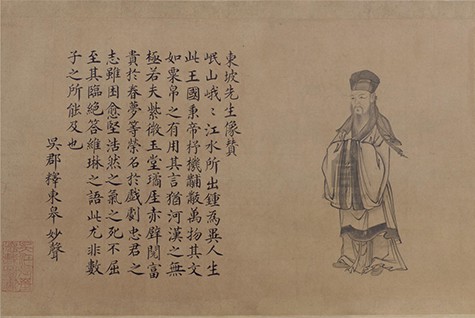 東坡先生像贊
岷山峨〻江水所出鍾為異人生
此王國秉帝杼機黼黻萬物其文
如粟帛之有用其言猶河漢之無
極若夫紫微玉堂璚厓赤壁閱富
貴於春夢等榮名於戲劇忠君之
志雖困愈堅浩然之氣之死不屈
至其臨絕答維琳之語此尤非數
子之所能及也
吳郡釋東皋妙聲